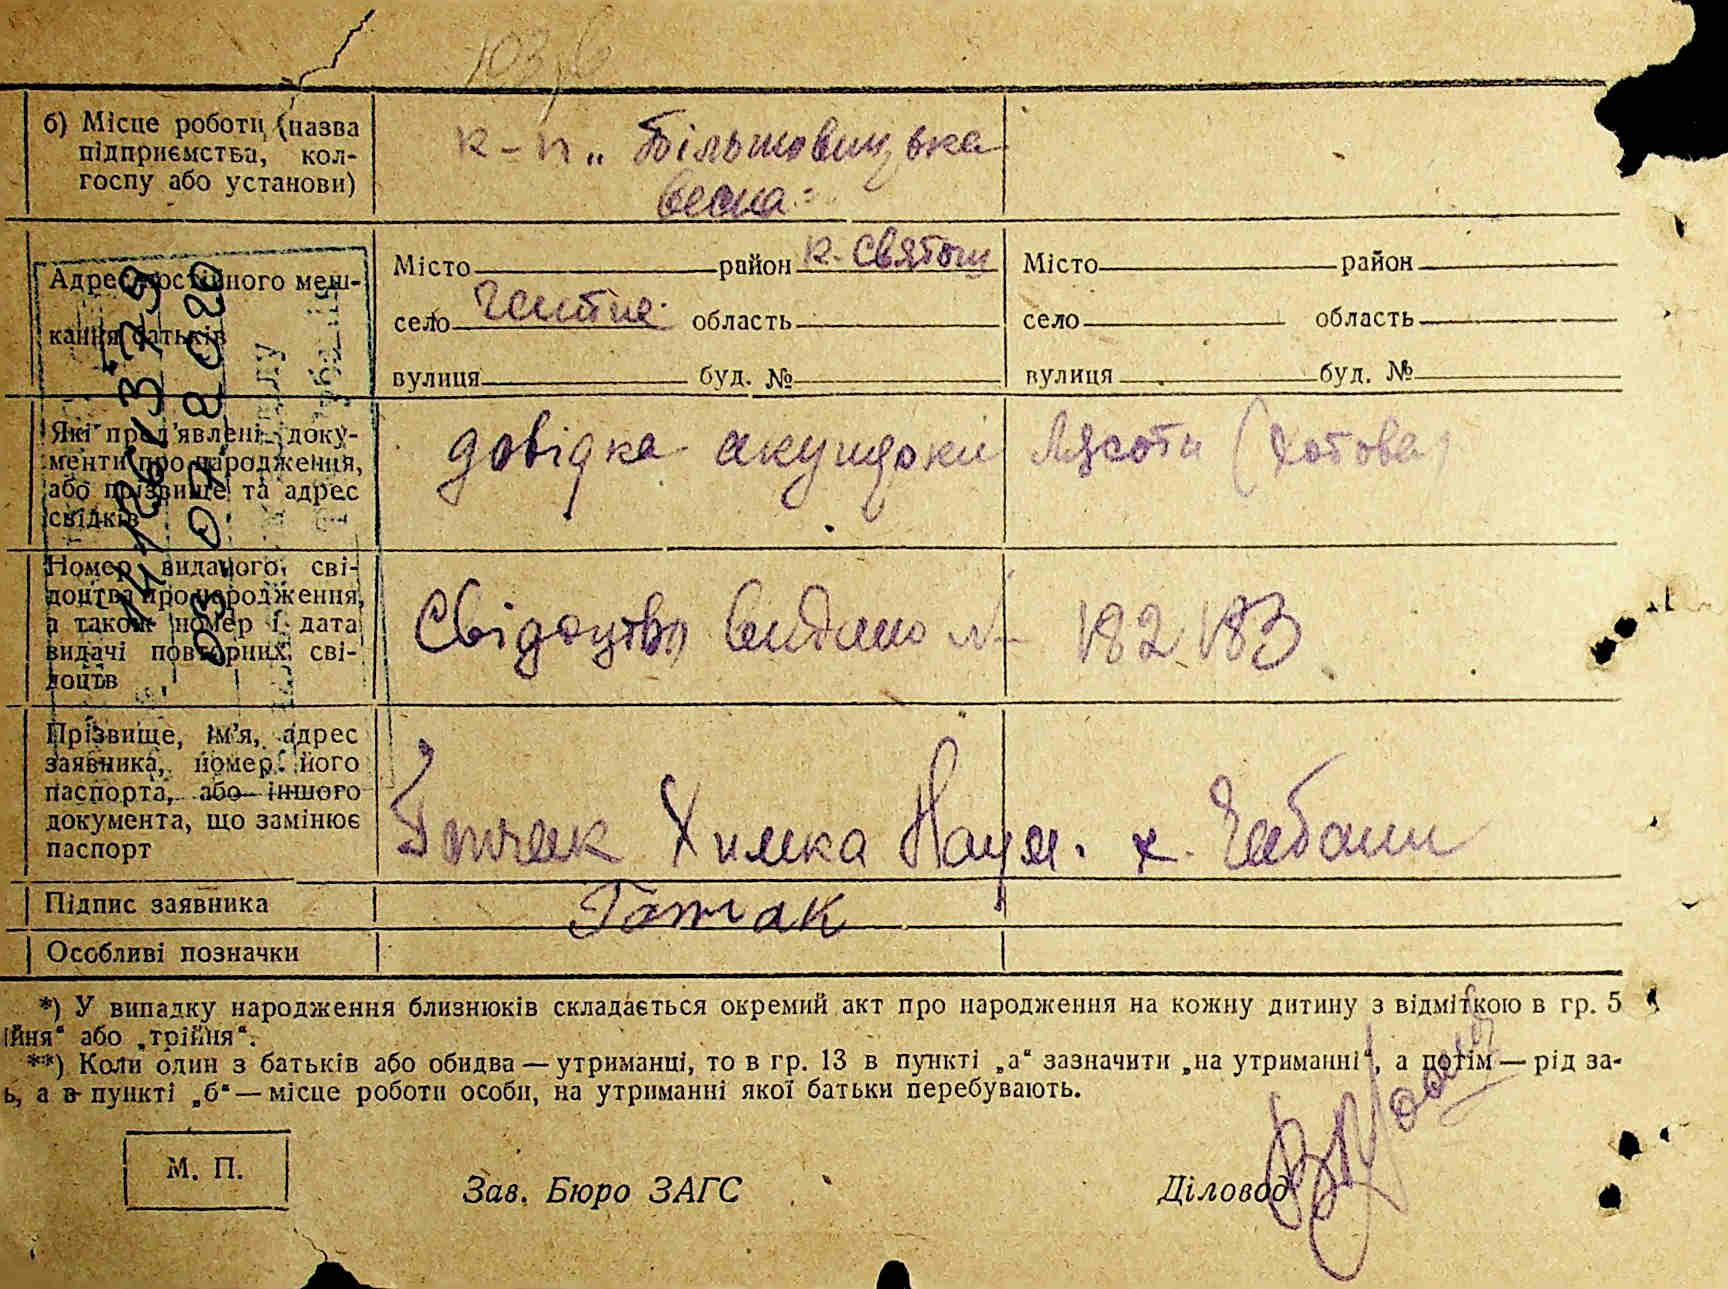 б) Місце роботи (назва підприємства, кол-
госпу або установи)
к-п „Більшовицька
весна"
Адрес постійного меш-
кання батьків
Місто район К-Святош
село область
вулиця буд. №
Місто район
село область
вулиця буд. №
Які пред'явлені доку-
менти про народження,
або прізвище та адрес
свідків
довідка акушорки Лясоти (Хотова)
Номер виданого сві-
доцтва про народження,
а також номер і дата
видачі повторних сві-
доцтв
Свідоцтво видано № 182183
Прізвище, ім'я, адрес
заявника, номер його
паспорта, або іншого
документа, що замінює
паспорт
Химка Наум. х. Чабани
Підпис заявника
Особливі позначки
*) У випадку народження близнюків складається окремий акт про народження на кожну дитину з відміткою в гр. 5
ійня" або „трійня".
**) Коли один з батьків або обидва — утриманці, то в гр. 13 в пункті „а" зазначити „на утриманні", а потім — рід за-
ь, а в пункті „б" — місце роботи особи, на утриманні якої батьки перебувають.
М. П.
Зав. Бюро ЗАГС
Діловод